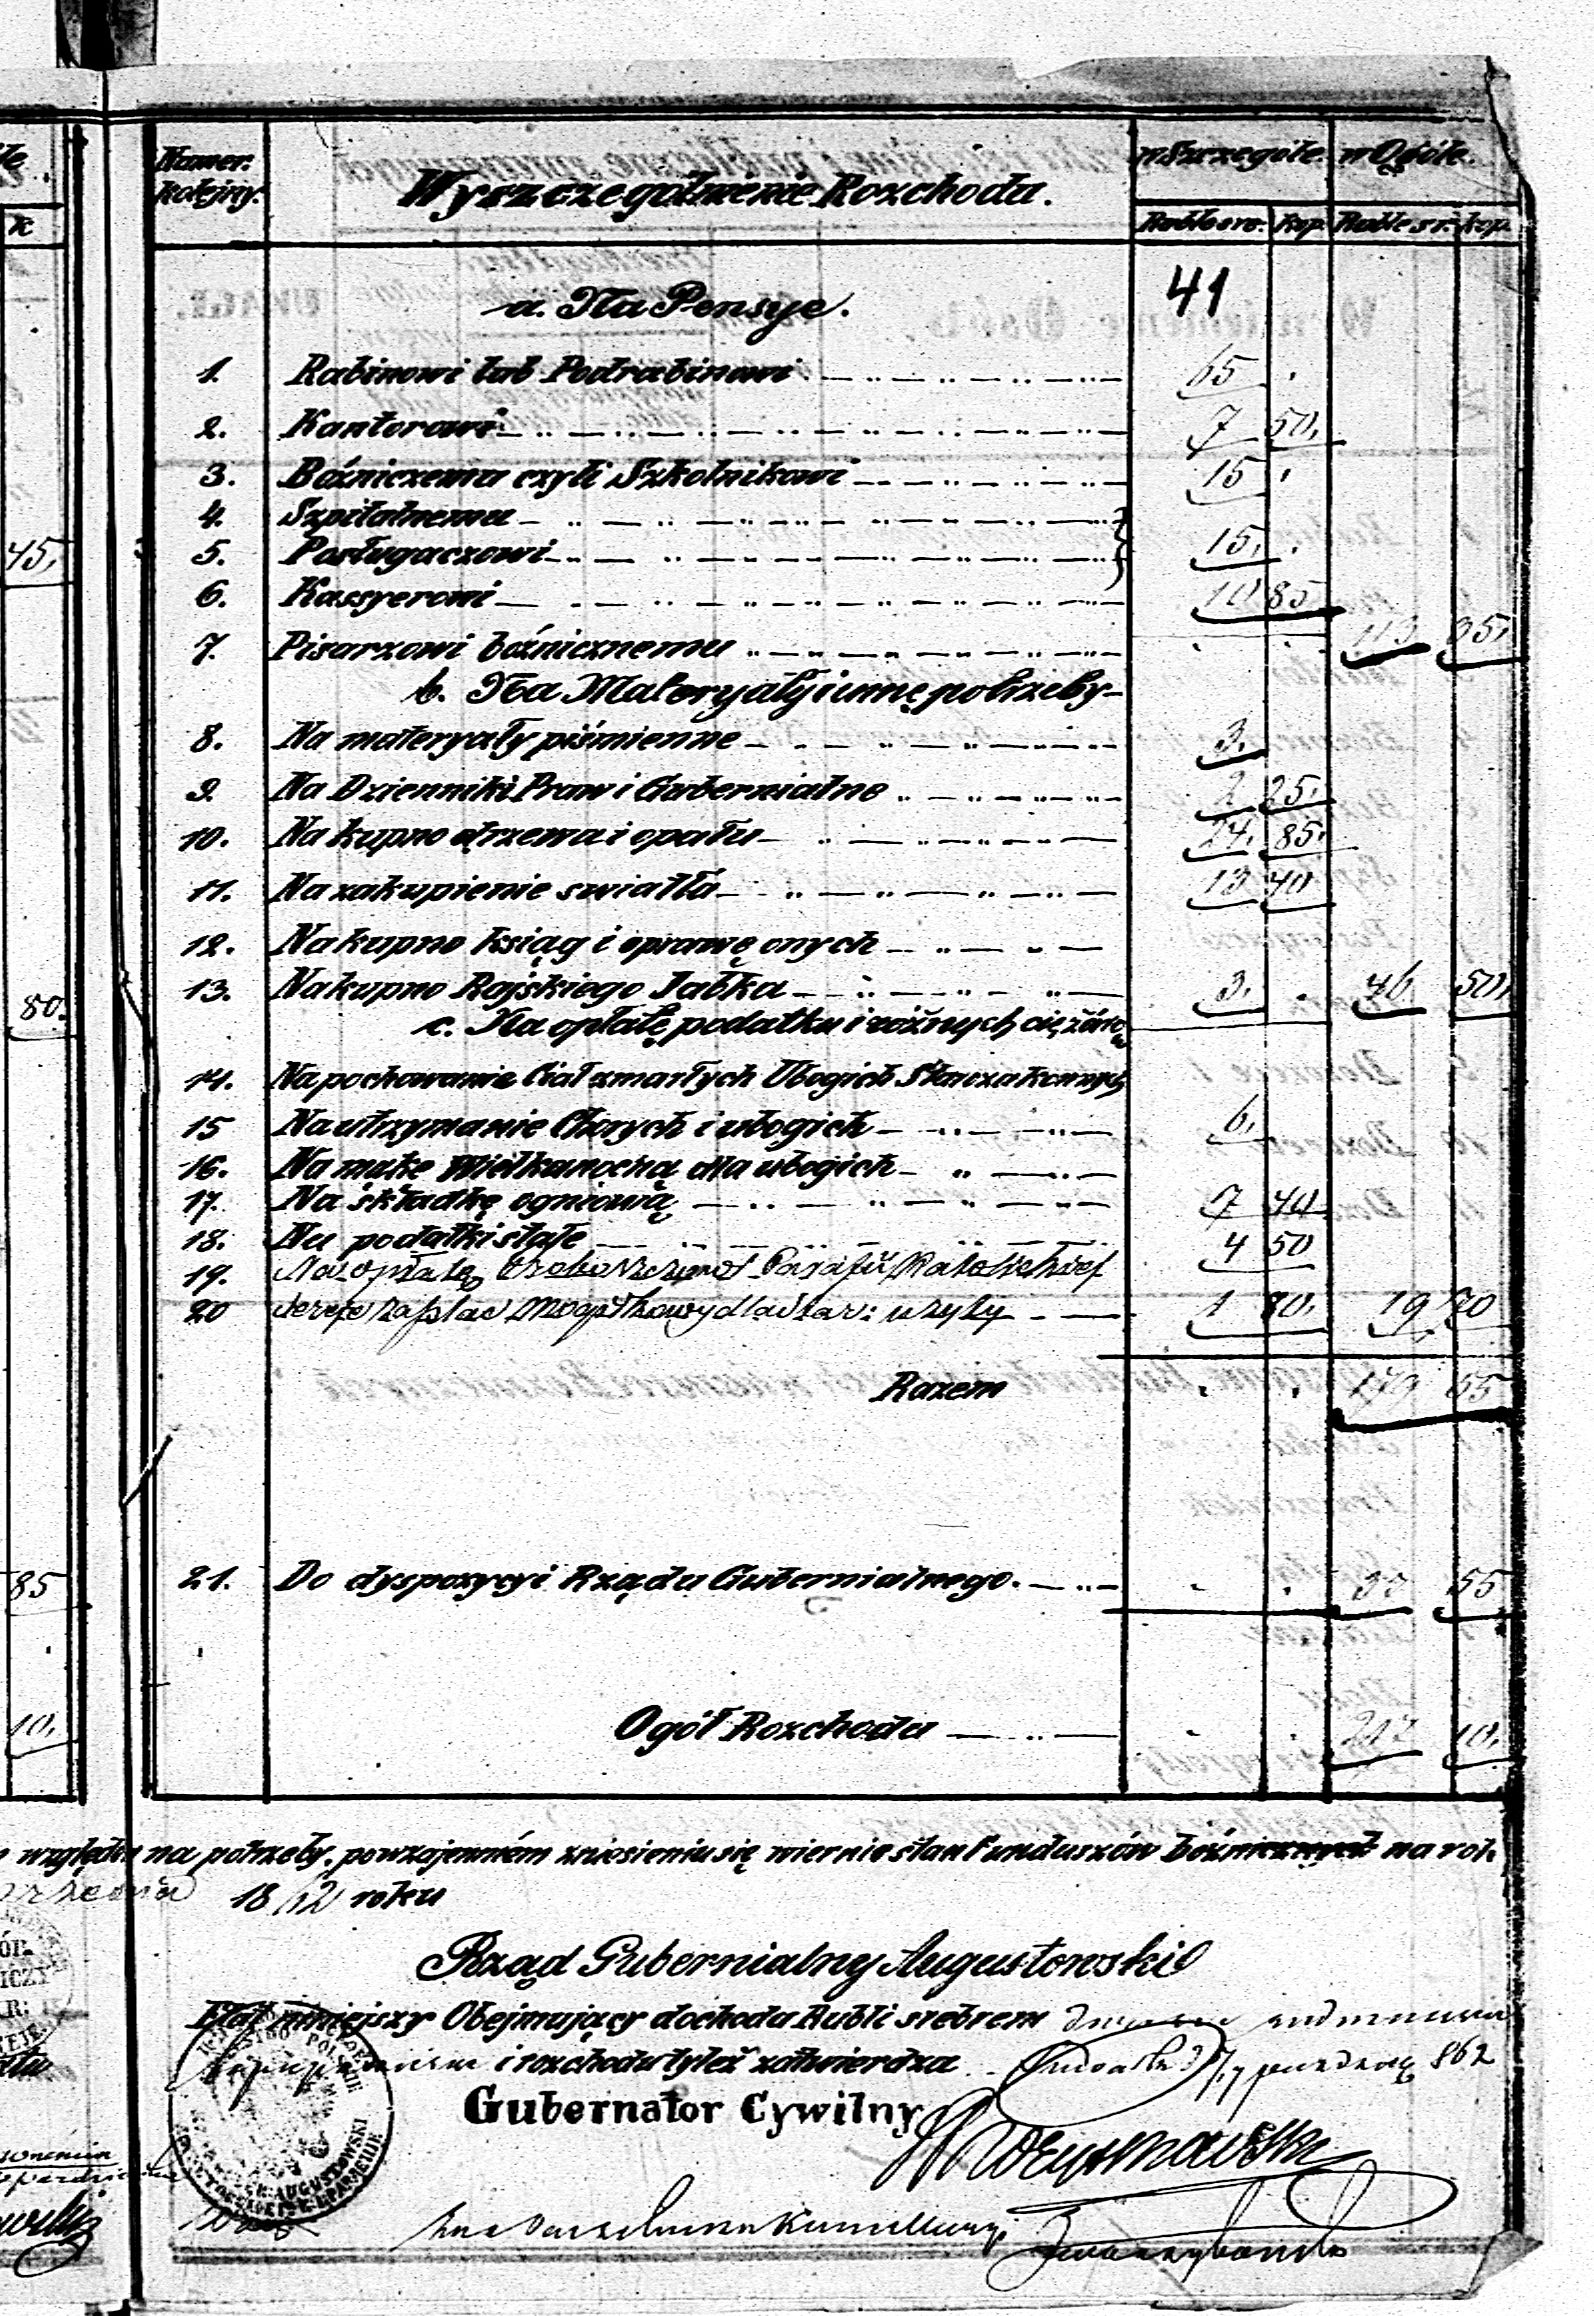 Numer Kolejny.
Wyszczególnienie Rozchodu.
w Szczególe. w Ogóle.
Ruble sre. Kop. Ruble sr. kop.
k
41
a. Na Pensye.
1. Rabinowi lub Podrabinowi 65 .
2. Kantorowi 7 50.
3. Bóźniczemu czyli Szkolnikowi 15 .
4. Szpitalnemu
5. Posługaczowi 15. .
45.
6. Kassyerowi 10 85
7. Pisarzowi bóźnicznemu . . 113 35.
b. Na Materyały i inne potrzeby
8. Na materyały piśmienne 3.
9. Na Dzienniki Praw i Gubernialne 2 25.
10. Na kupno drzewa i opału 24. 85.
11. Na zakupienie swiatła 13 40
12. Na kupno ksiąg i oprawę onych
13. Na kupno Rajskiego Jabka 3. . 46 50.
80.
c. Na opłatę podatku i różnych ciężarów
14. Na pochowanie Ciał zmarłych Ubogich Starozakonnych
15 Na utrzymanie Chorych i ubogich 6.
16. Na mąkę Wielkanocną dla ubogich
17. Na składkę ogniową 7 40
18. Na podatki stałe 4 50
19. Na opłatę Proboszczowi Parafii Katolickiej
20 za plac 1 80. 19 70
Razem . . 179 55
21. Do dyspozycyi Rządu Gubernialnego. . . 37 55
85
Ogół Rozchodu . . 217 10.
10.
względu na potrzeby, po wzajemném zniesieniu się wiernie stan Funduszów bóźnicznych na rok
18 62 roku
Rząd Gubernialny Augustowski
Etat niniejszy Obejmujący dochodu Rubli srebrem
i rozchodu tyleż zatwierdza 862
Gubernator Cywilny